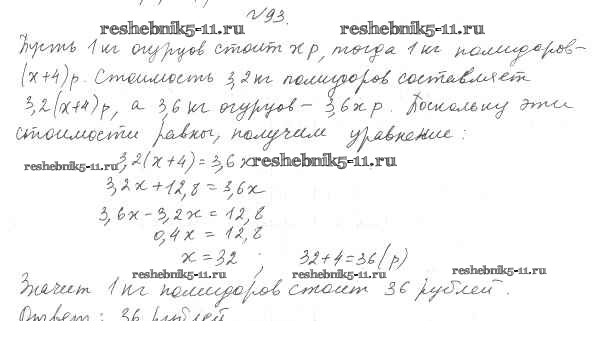 №93.
reshebnik5-11.ru reshebnik5-11.ru
Пусть 1 кг огурцов стоит х р, тогда 1 кг помидоров –
(х+4) р. Стоимость 3,2 кг помидоров составляет
3,2(х+4) р, а 3,6 кг огурцов – 3,6х р. Поскольку эти
стоимости равны, получим уравнение:
reshebnik5-11.ru 3,2(х+4)=3,6х reshebnik5-11.ru
3,2х+12,8=3,6х
3,6х-3,2х=12,8
0,4х=12,8
х=32 ; 32+4=36(р)
reshebnik5-11.ru reshebnik5-11.ru reshebnik5-11.ru
Значит 1 кг помидоров стоит 36 рублей.
Ответ: 36 рублей